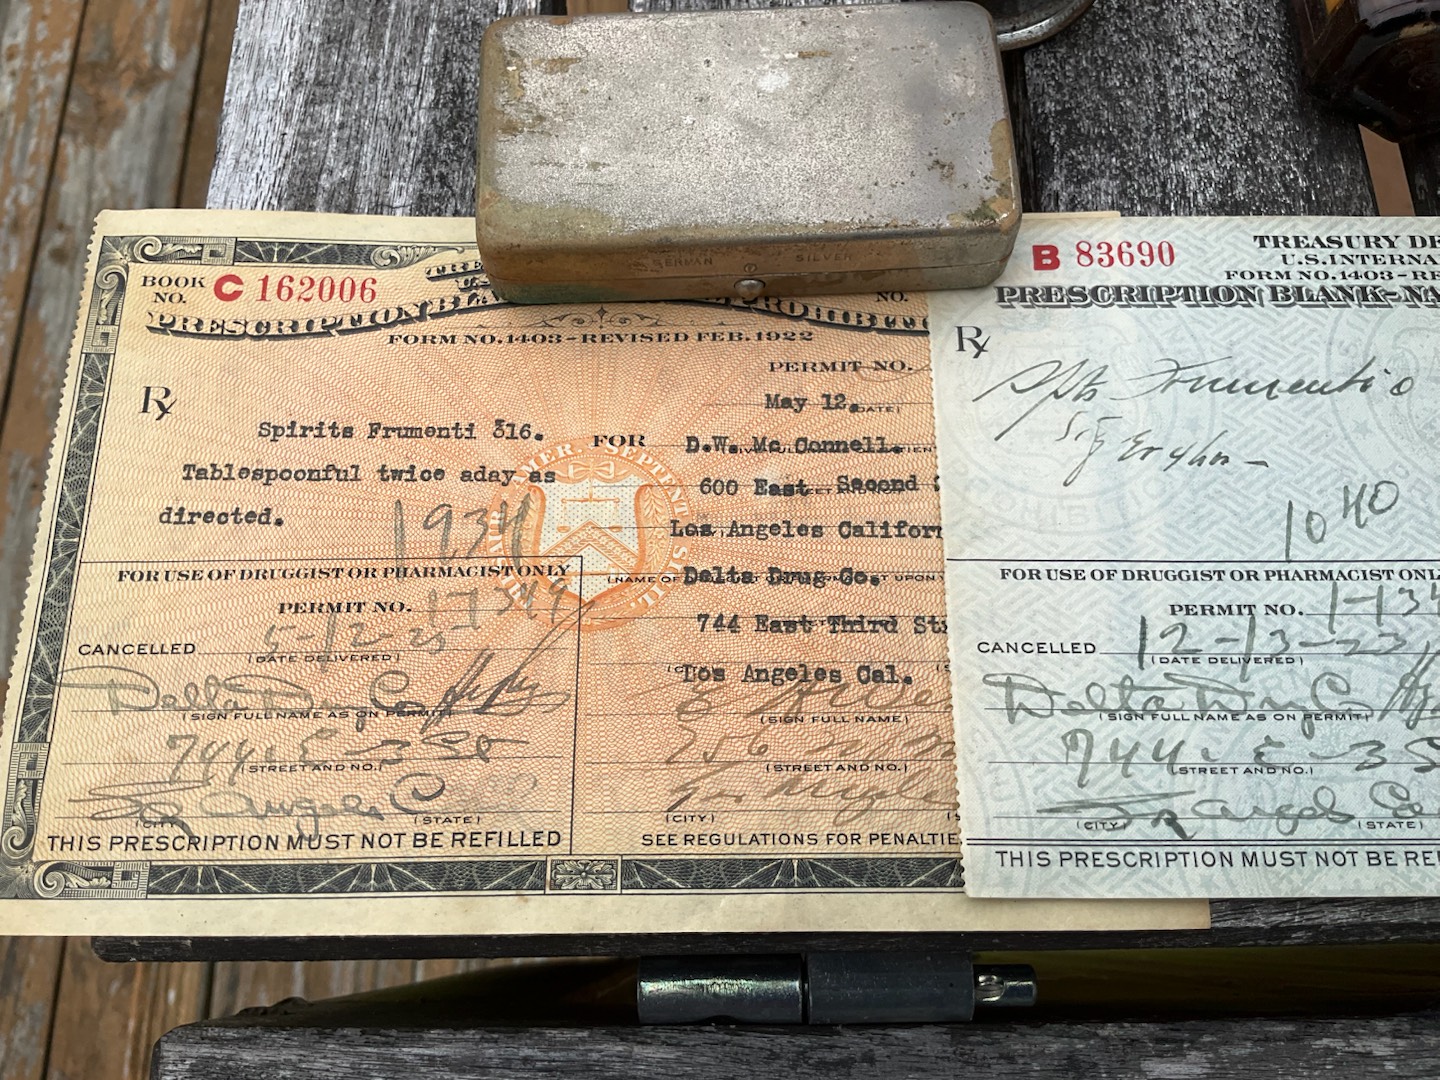 GERMAN SILVER
BOOK NO. C 162006
NO.
PRESCRIPTION BLA PROHIBITI
FORM NO. 1403 - REVISED FEB. 1922
PERMIT NO.
Rx
May 12.
(DATE)
Spirits Frumenti ℥16.
FOR D.W. Mc Connell.
Tablespoonful twice aday as
600 East Second S
directed.
Los Angeles Californ
1934
FOR USE OF DRUGGIST OR PHARMACIST ONLY
Delta Drug Co.
PERMIT NO.
744 East Third Str
CANCELLED 5-12-23
(DATE DELIVERED)
Los Angeles Cal.
Delta Drug Co
(SIGN FULL NAME AS ON PERMIT)
(SIGN FULL NAME)
744 E - 3 St
(STREET AND NO.)
256
(STREET AND NO.)
Los Angeles C
(CITY) (STATE)
(CITY)
THIS PRESCRIPTION MUST NOT BE REFILLED
SEE REGULATIONS FOR PENALTIE
B 83690
TREASURY DE
U.S. INTERNA
FORM NO. 1403 - RE
PRESCRIPTION BLANK-NA
Rx
Spts Frumenti
Sig
10 40
FOR USE OF DRUGGIST OR PHARMACIST ONL
PERMIT NO. 1-134
CANCELLED 12-13-23
(DATE DELIVERED)
Delta Drug Co
(SIGN FULL NAME AS ON PERMIT)
744 E - 3 S
(STREET AND NO.)
Los Angeles Ca
(CITY) (STATE)
THIS PRESCRIPTION MUST NOT BE REF